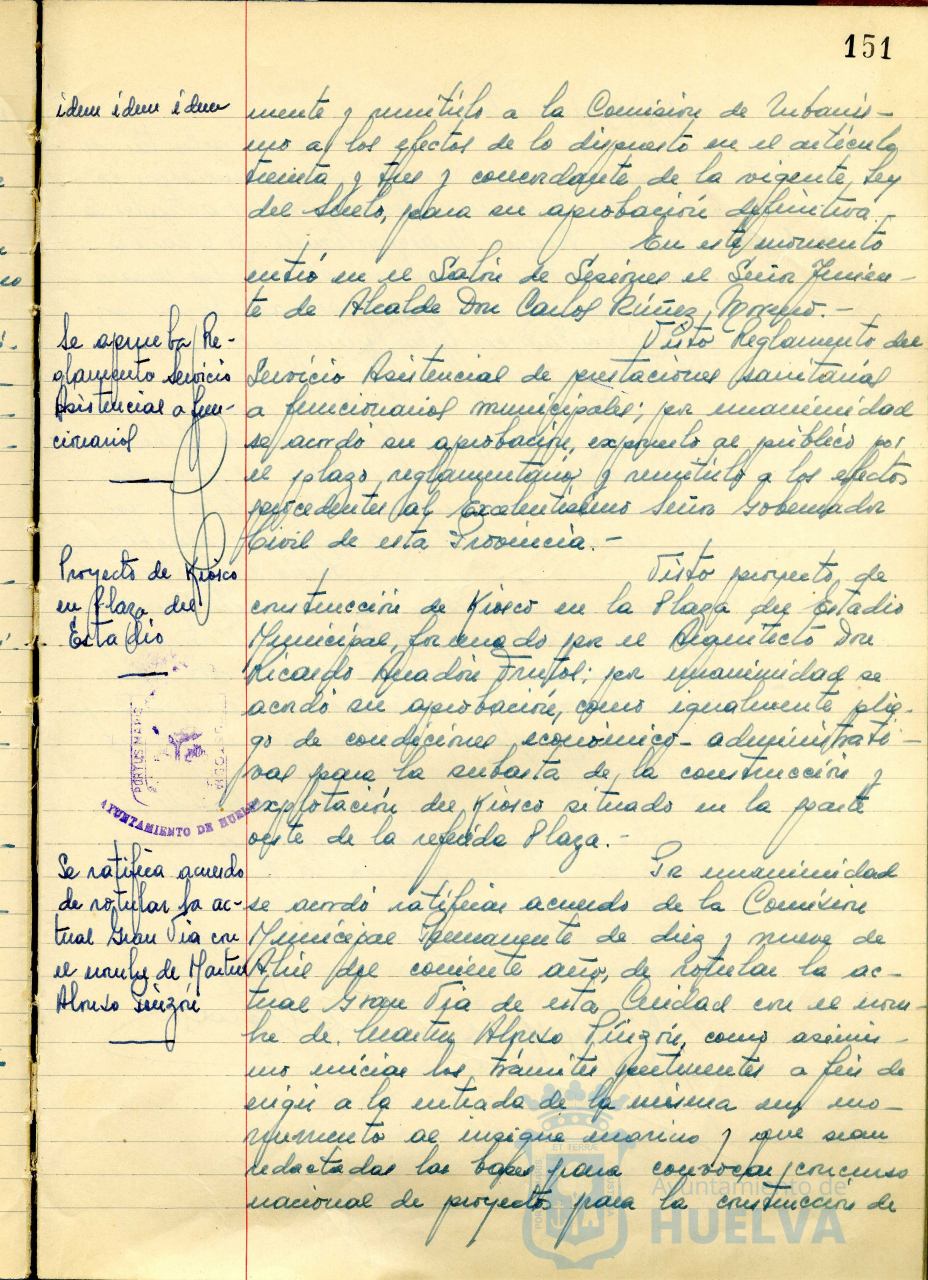 151
idem idem idem
mente y remitirlo a la Comisión de Urbanis-
mo a los efectos de lo dispuesto en el artículo
treinta y tres y concordante de la vigente Ley
del Suelo, para su aprobación definitiva.
En este momento
entró en el Salón de Sesiones el Señor Tenien-
te de Alcalde Don Carlos Núñez Moreno.-
Se aprueba Re-
glamento Servicio
Asistencial a fun-
cionarios
Visto Reglamento del
Servicio Asistencial de prestaciones sanitarias
a funcionarios municipales; por unanimidad
se acordó su aprobación, exponerlo al público por
el plazo reglamentario y remitirlo a los efectos
procedentes al Excelentísimo Señor Gobernador
Civil de esta Provincia.-
Proyecto de Kiosco
en Plaza del
Estadio
Visto proyecto de
construcción de Kiosco en la Plaza del Estadio
Municipal, formado por el Arquitecto Don
Ricardo Anadón Frutos; por unanimidad se
acordó su aprobación, como igualmente plie-
go de condiciones económico-administrati-
vas para la subasta de la construcción y
explotación del Kiosco situado en la parte
oeste de la referida Plaza.-
PORTUS MARIS
AYUNTAMIENTO DE HUELVA
Se ratifica acuerdo
de rotular la ac-
tual Gran Vía con
el nombre de Martín
Alonso Pinzón
Por unanimidad
se acordó ratificar acuerdo de la Comisión
Municipal Permanente de diez y nueve de
Abril del corriente año, de rotular la ac-
tual Gran Vía de esta Ciudad con el nom-
bre de Martín Alonso Pinzón, como asimis-
mo iniciar los trámites pertinentes a fin de
erigir a la entrada de la misma un mo-
numento al insigne marino y que sean
redactadas las bases para convocar concurso
nacional de proyectos para la construcción de
Ayuntamiento de
HUELVA